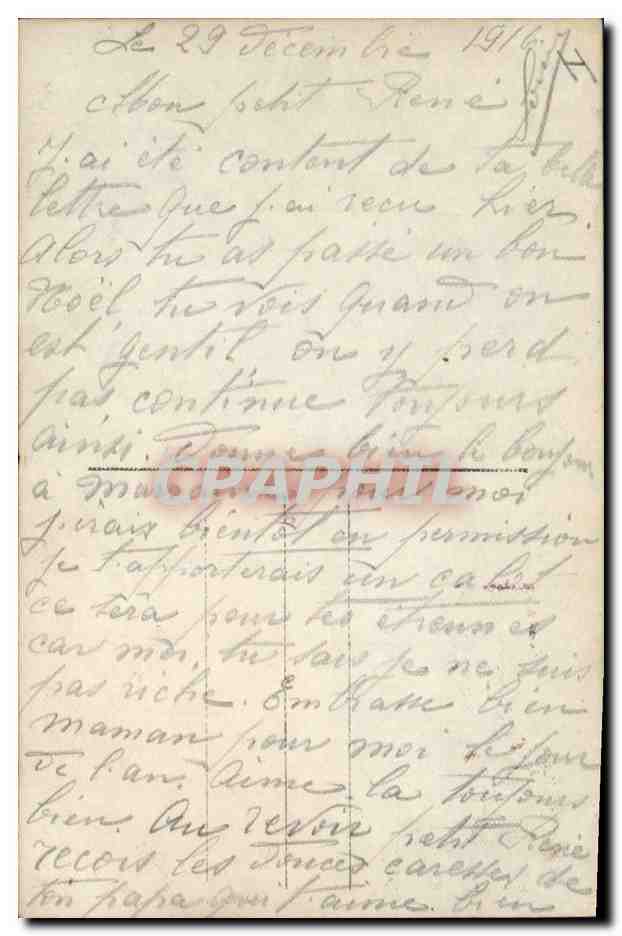 Le 29 décembre 1916
Mon petit René
J.ai été content de ta belle
lettre que j.ai reçu hier.
Alors tu as passé un bon
Noël tu vois quand on
est gentil on y perd
pas continue toujours
ainsi. Donne bien le bonjour
à pour moi
j.irais bientôt en permission
je t'apporterais un
ce sera pour tes étrennes
car moi tu sais je ne suis
pas riche. Embrasse bien
maman pour moi le jour
de l.an. aime.la toujours
bien. Au revoir petit René
reçois les douces caresses de
ton papa qui t'aime bien
CPAPHIL